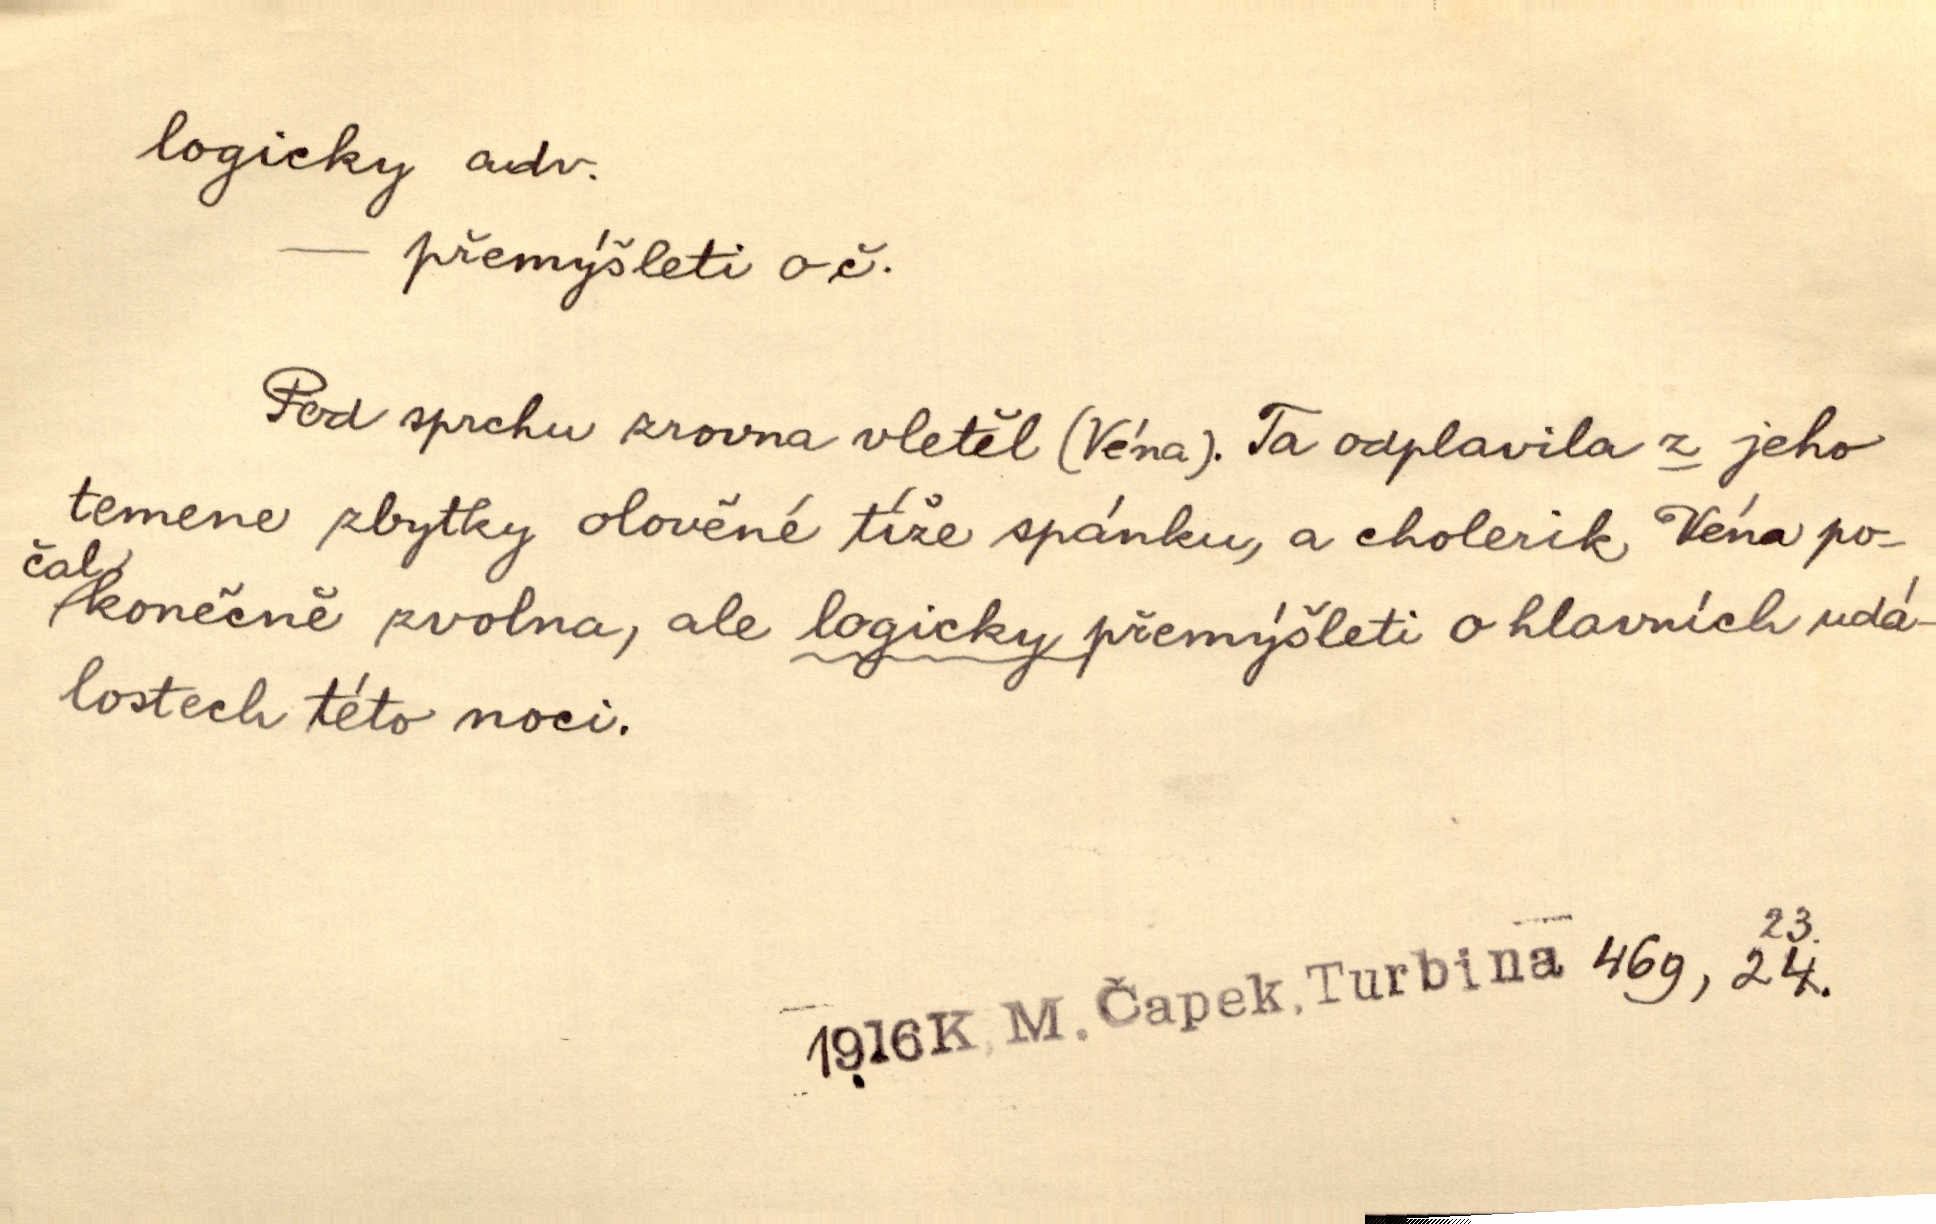 logicky adv.
— přemýšleti o č.
Pod sprchu zrovna vletěl (Véna). Ta odplavila z jeho
temene zbytky olověné tíže spánku, a cholerik Véna po-
čal
konečně zvolna, ale logicky přemýšleti o hlavních udá-
lostech této noci.
23.
1916 K. M. Čapek, Turbina 469, 24.